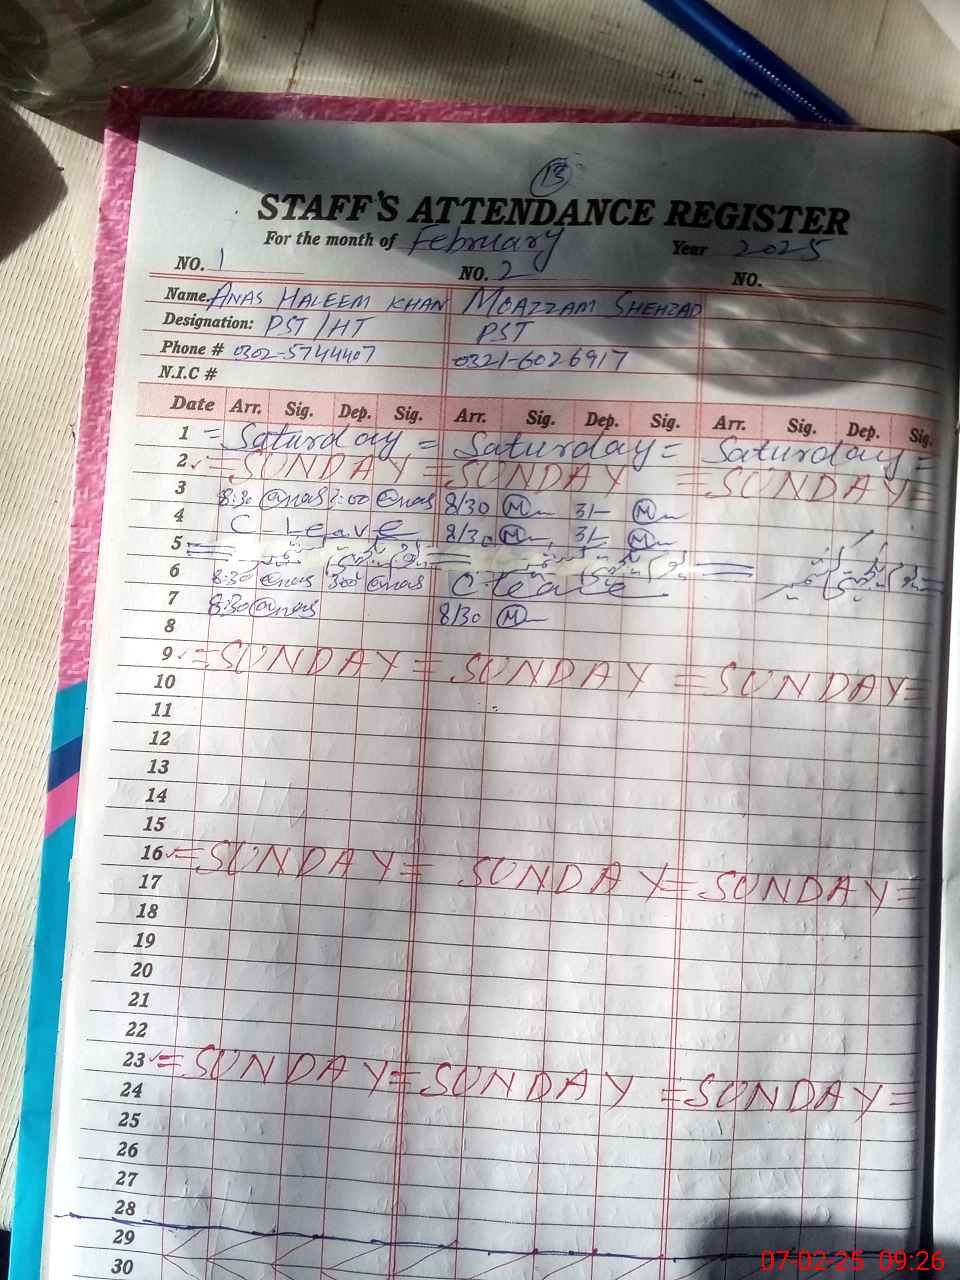 13
STAFF'S ATTENDANCE REGISTER
For the month of February Year 2025
NO. 1 NO. 2 NO.
Name. ANAS HALEEM KHAN MOAZZAM SHEHZAD
Designation: PST/HT PST
Phone # 0302-5744407 0321-6026917
N.I.C #
Date Arr. Sig. Dep. Sig. Arr. Sig. Dep. Sig. Arr. Sig. Dep. Sig.
1 = Saturday = Saturday = Saturday =
2 ✓ = SUNDAY = SUNDAY = SUNDAY =
3 8:30 Anas 2:00 Anas 8/30 M 3/- M
4 C Leave 8/30 M 3/- M
5
6 8:30 Anas 3:00 Anas C Leave
7 8:30 Anas 8/30 M
8
9 ✓ = SUNDAY = SUNDAY = SUNDAY =
10
11
12
13
14
15
16 ✓ = SUNDAY = SUNDAY = SUNDAY =
17
18
19
20
21
22
23 ✓ = SUNDAY = SUNDAY = SUNDAY =
24
25
26
27
28
29
30
07-02-25 09:26